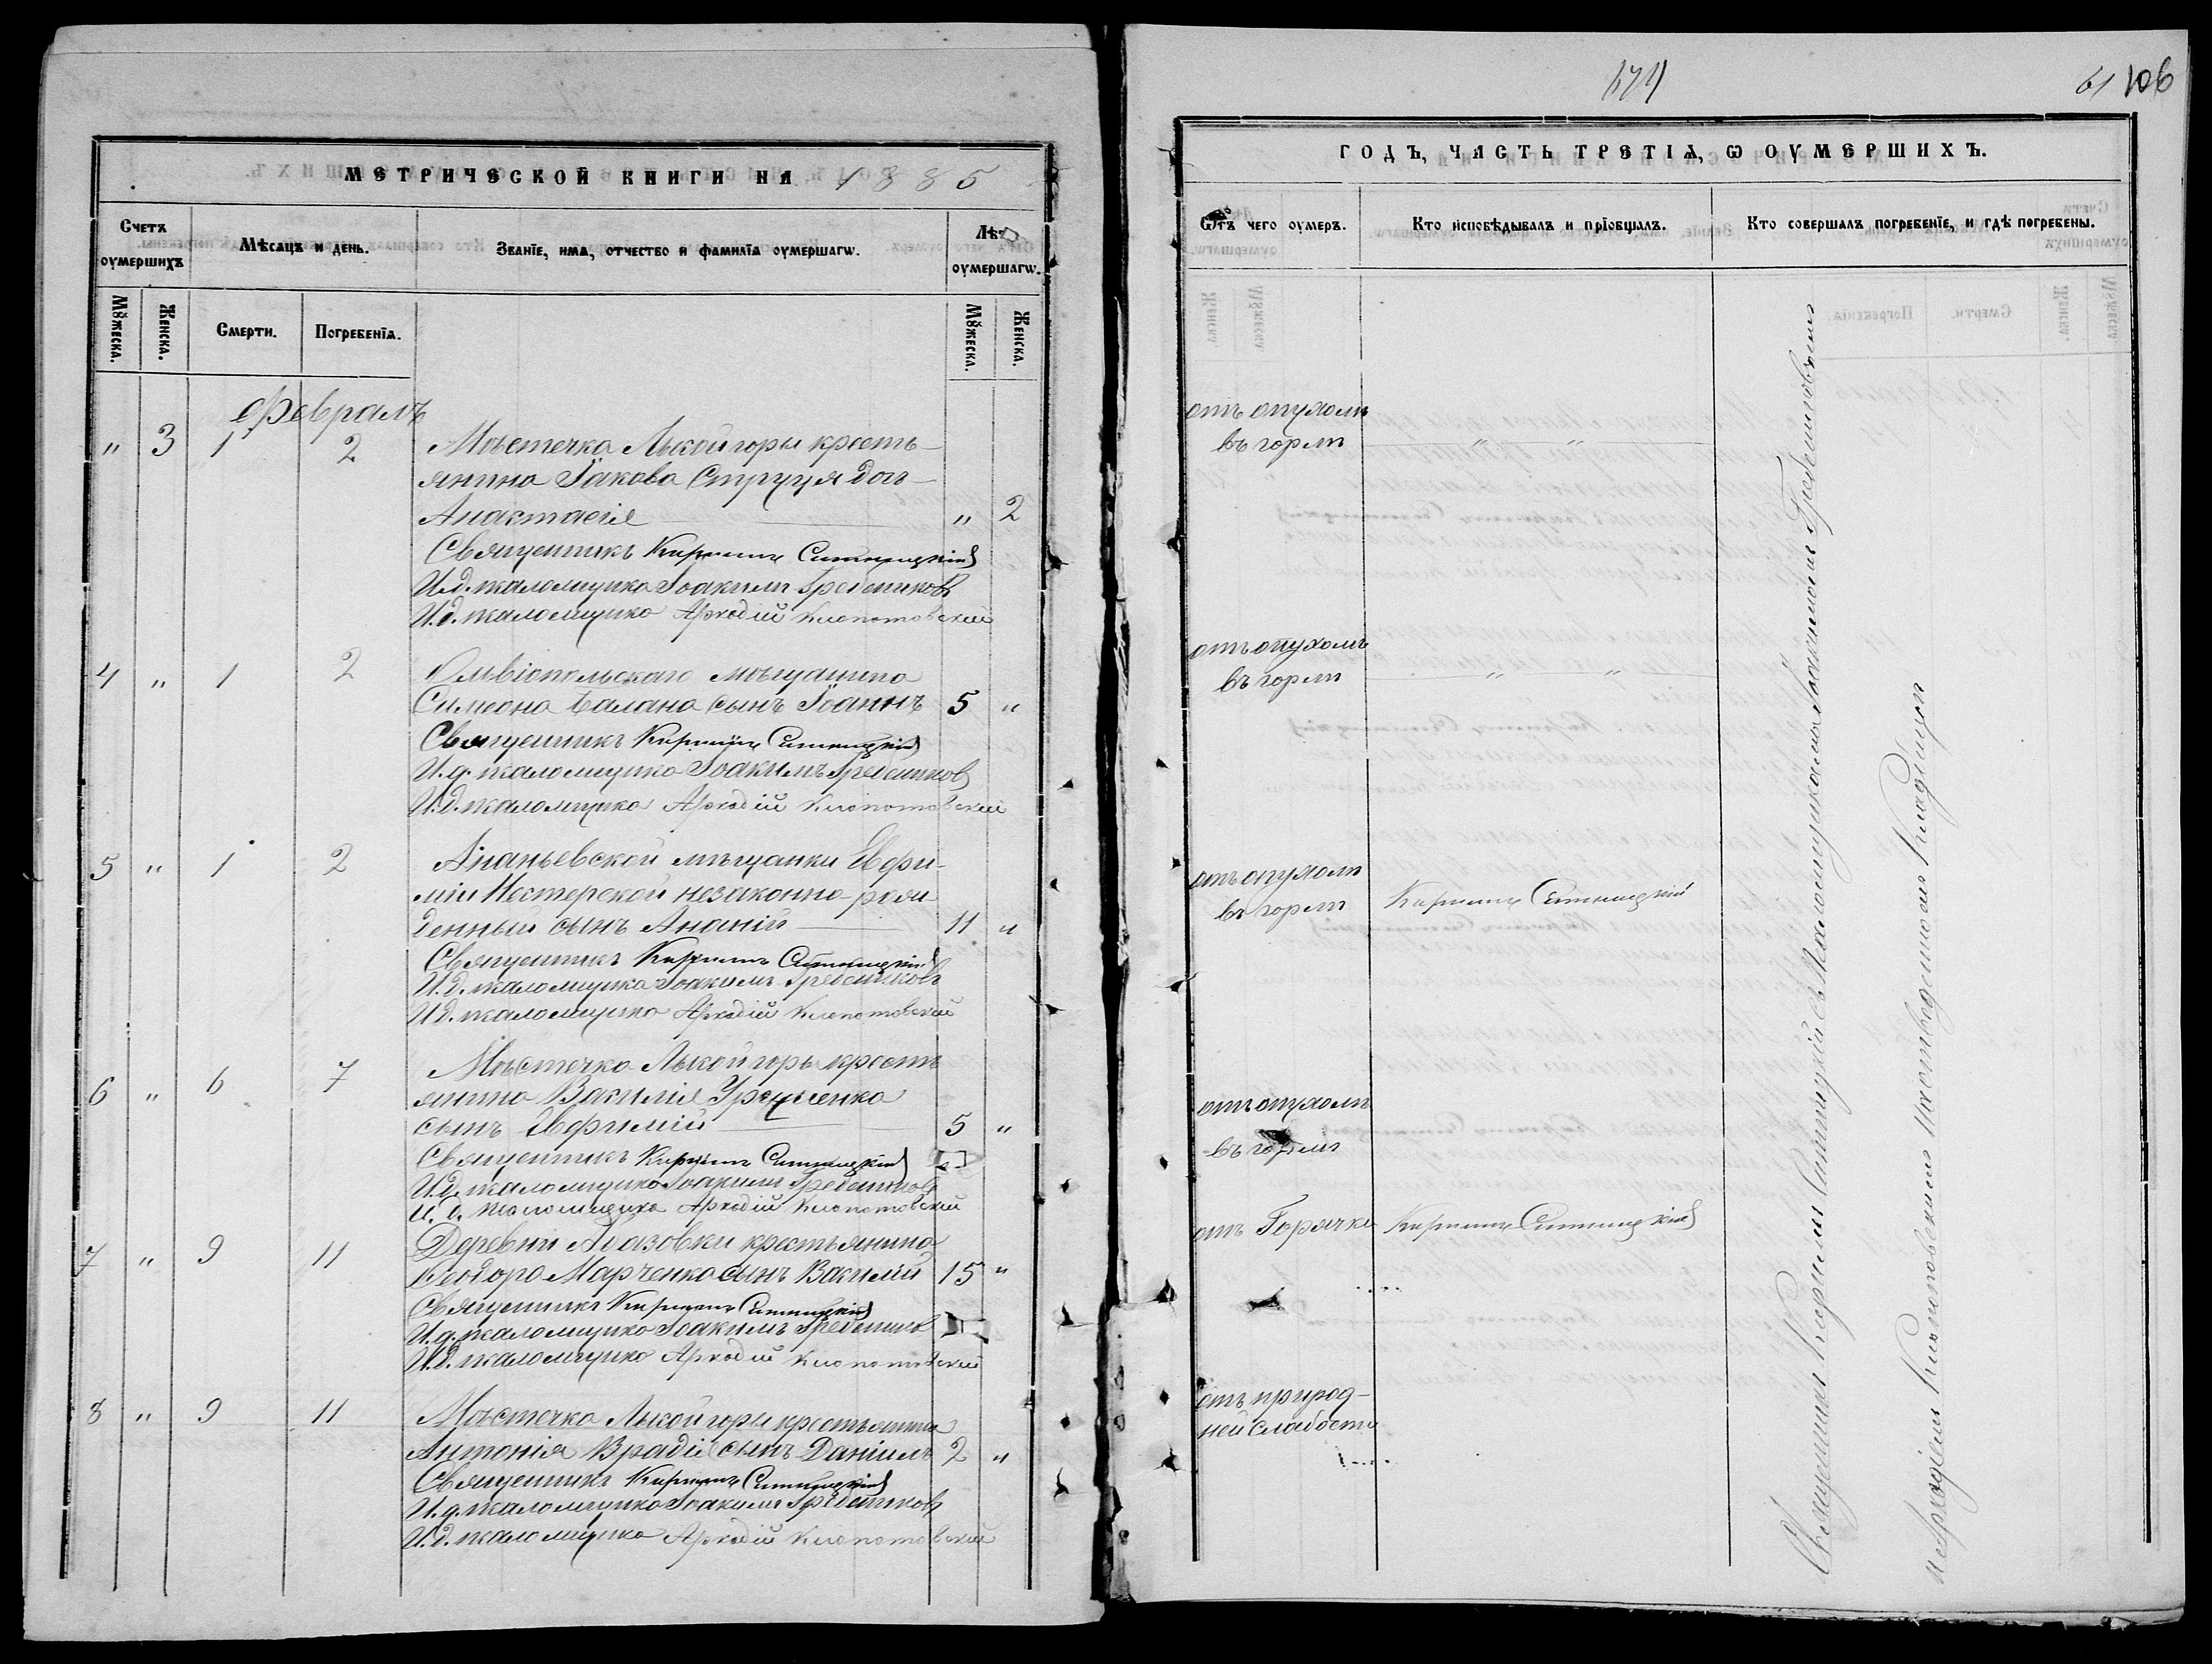 МЕТРИЧЕСКОЙ КНИГИ НА 1885
Счетъ оумершихъ
Мѣсяцъ и день.
Званіе, имя, отчество и фамилія оумершагѡ.
Лѣт
оумершагѡ.
Мꙋжеска.
Женска.
Смерти.
Погребенія.
Мꙋжеска.
Женска.
Февраль
" 3 1 2 Мѣстечка Лысойгоры кресть-
янина Іакова Струця дочь
Анастасія " 2
Священникъ Кириллъ Ситницкій
И.д. псаломщика Іоакимъ Гребениковъ
И.д. псаломщика Аркадій Клопотовскій
4 " 1 2 Ольвіопольскаго мѣщанина
Симеона Балана сынъ Іоаннъ 5 "
Священникъ Кириллъ Ситницкій
И.д. псаломщика Іоакимъ Гребениковъ
И.д. псаломщика Аркадій Клопотовскій
5 " 1 2 Ананьевской мѣщанки Евфи-
міи Нестерской незаконно-рож
денный сынъ Ананій 11 "
Священникъ Кириллъ Ситницкій
И.д. псаломщика Іоакимъ Гребениковъ
И.д. псаломщика Аркадій Клопотовскій
6 " 6 7 Мѣстечка Лысойгоры кресть
янина Василія
сынъ Евфимій 5 "
Священникъ Кириллъ Ситницкій
И.д. псаломщика Іоакимъ Гребениковъ
И.д. псаломщика Аркадій Клопотовскій
7 " 9 11 Деревни крестьянина
Ѳеодора Марченка сынъ Василій 15 "
Священникъ Кириллъ Ситницкій
И.д. псаломщика Іоакимъ Гребениковъ
И.д. псаломщика Аркадій Клопотовскій
8 " 9 11 Мѣстечка Лысойгоры крестьянина
Антонія Врадія сынъ Даніилъ 2 "
Священникъ Кириллъ Ситницкій
И.д. псаломщика Іоакимъ Гребениковъ
И.д. псаломщика Аркадій Клопотовскій
61 106
ГОДЪ, ЧАСТЬ ТРЕТІЯ, Ѡ ОУМЕРШИХЪ.
Ѿтъ чего оумеръ.
Кто исповѣдывалъ и пріобщалъ.
Кто совершалъ погребеніе, и гдѣ погребены.
отъ опухоли
въ горлѣ " "
отъ опухоли
въ горлѣ " "
отъ опухоли
въ горлѣ Кириллъ Ситницкій
отъ опухоли
въ горлѣ
отъ Горячки Кириллъ Ситницкій
отъ природ-
ной слабости
Священникъ Кириллъ Ситницкій съ Псаломщиками Іоакимомъ Гребениковымъ
и Аркадіемъ Клопотовскимъ на приходскомъ кладбищѣ